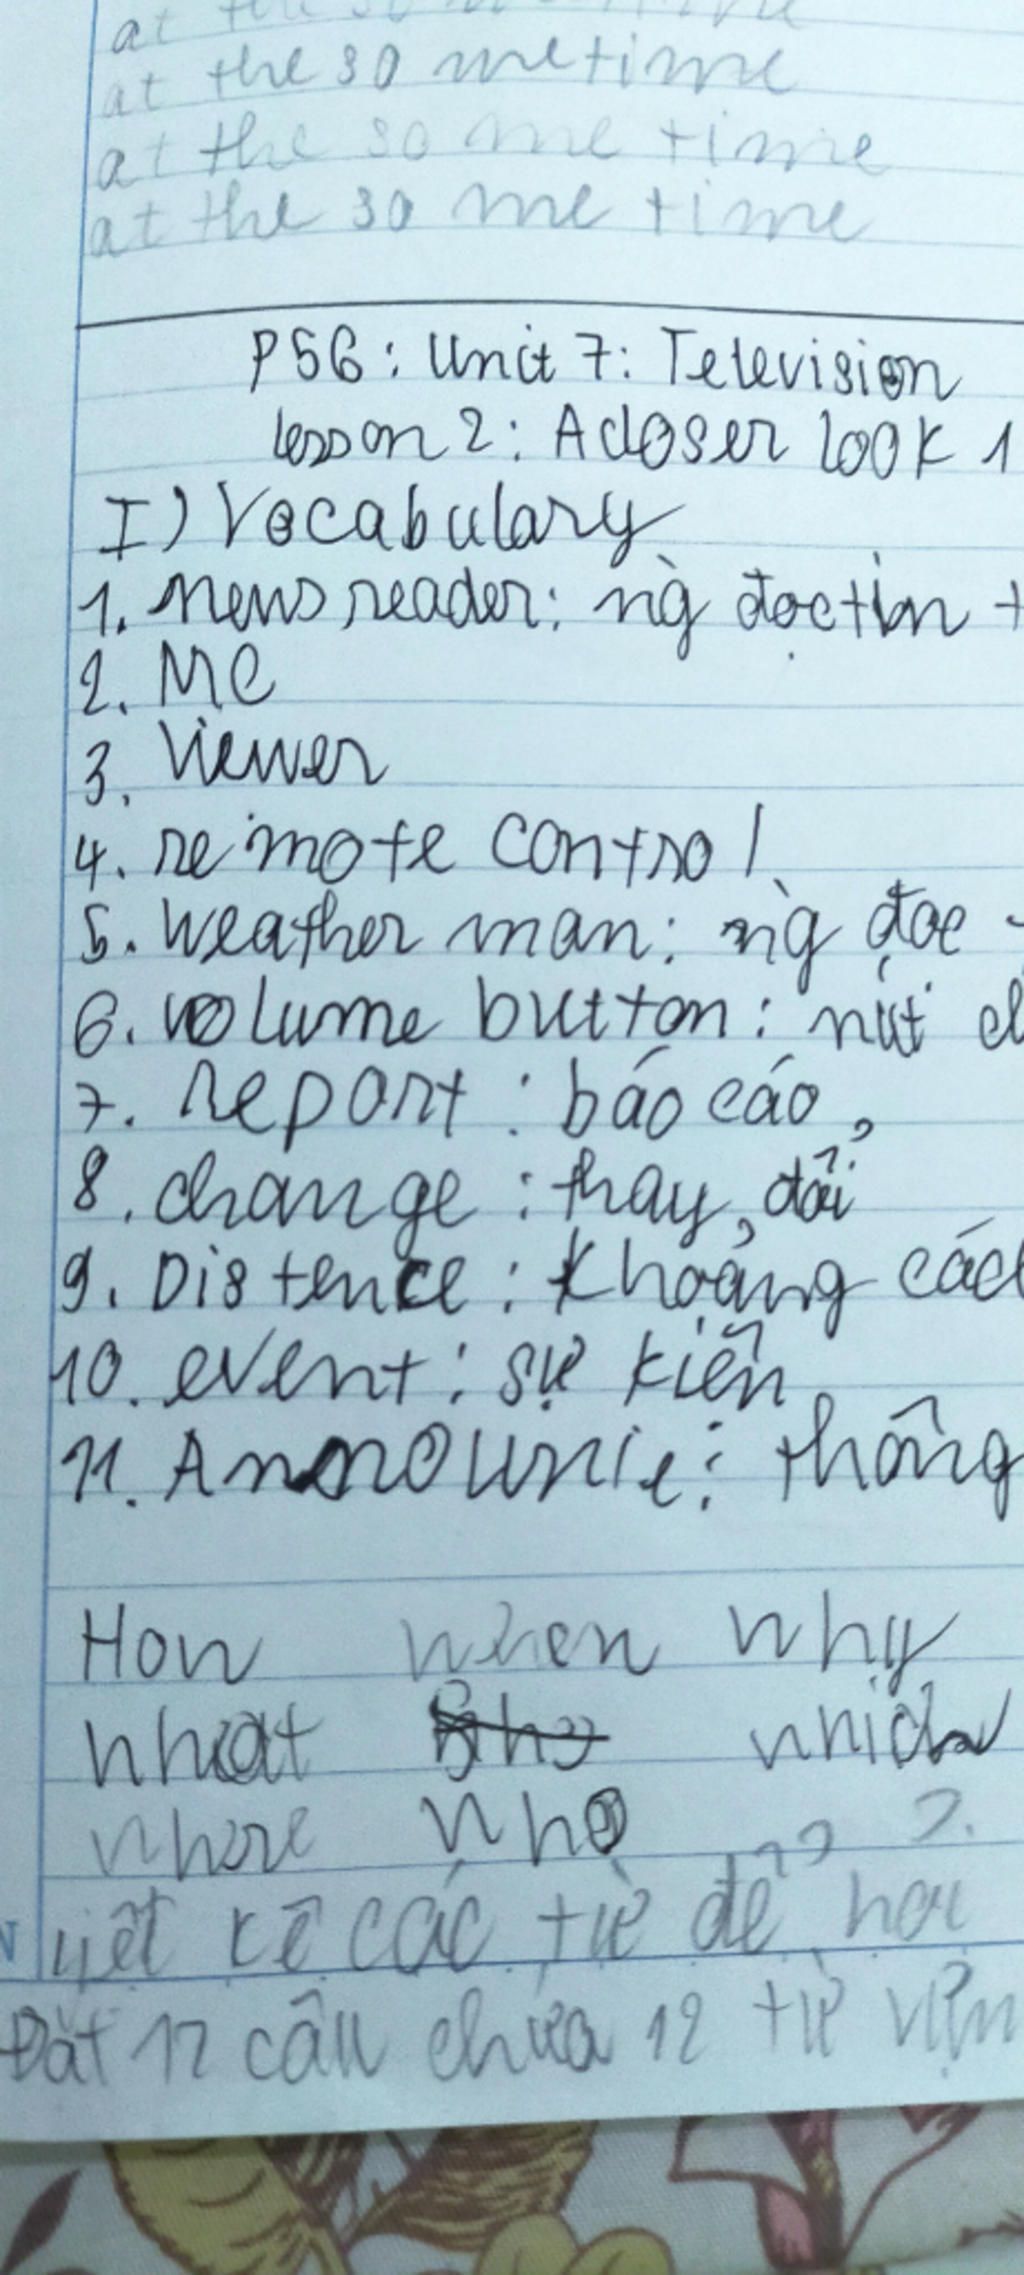 at the so me time
at the so metime
at the so me time
at the so me time
P56: Unit 7: Television
Lesson 2: A closer look 1
I) Vocabulary
1. News reader: ng̀ đọc tin t
2. MC
3. Viewer
4. remote control
5. Weather man: ng̀ đọc
6. volume button: nút ch
7. Report: báo cáo,
8. change: thay, đổi
9. Distence: Khoảng các
10. event: sự kiễn
11. Announie: thông
How when why
what who which
where who
Liệt kê các từ để hỏi
Đặt 12 câu chứa 12 từ